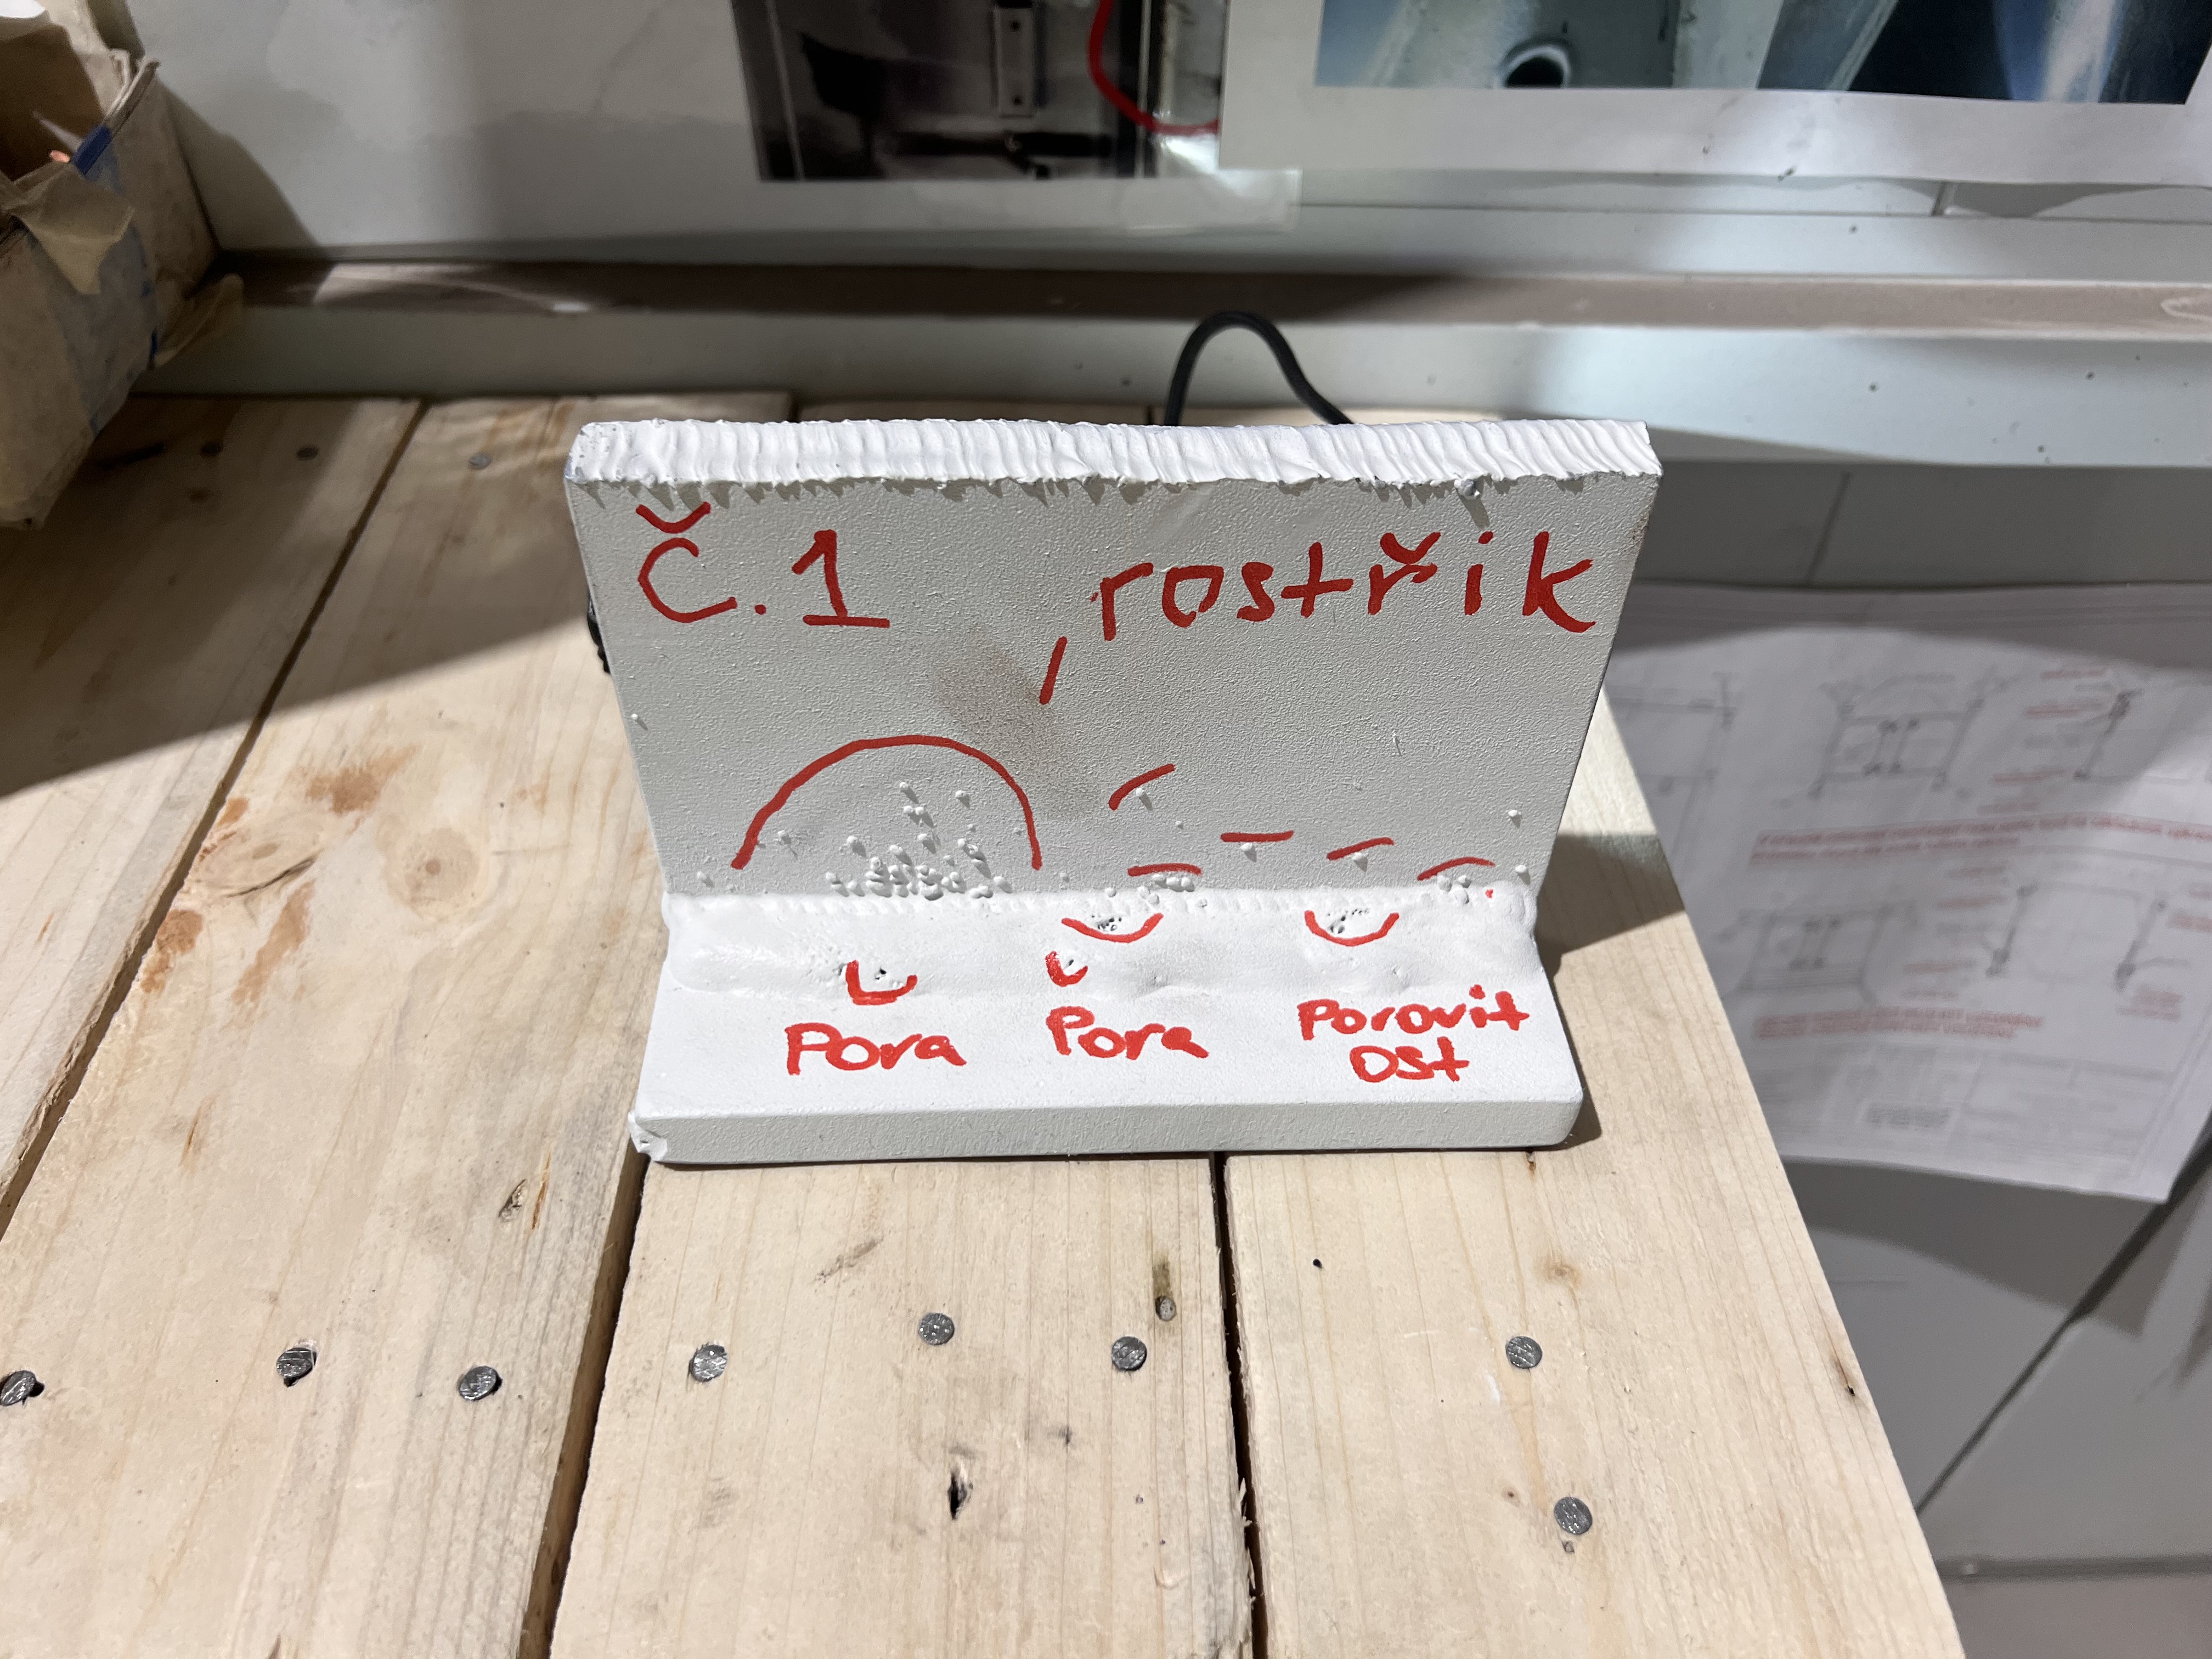 Č.1
rostřik
Pora
Pora
Porovit
ost